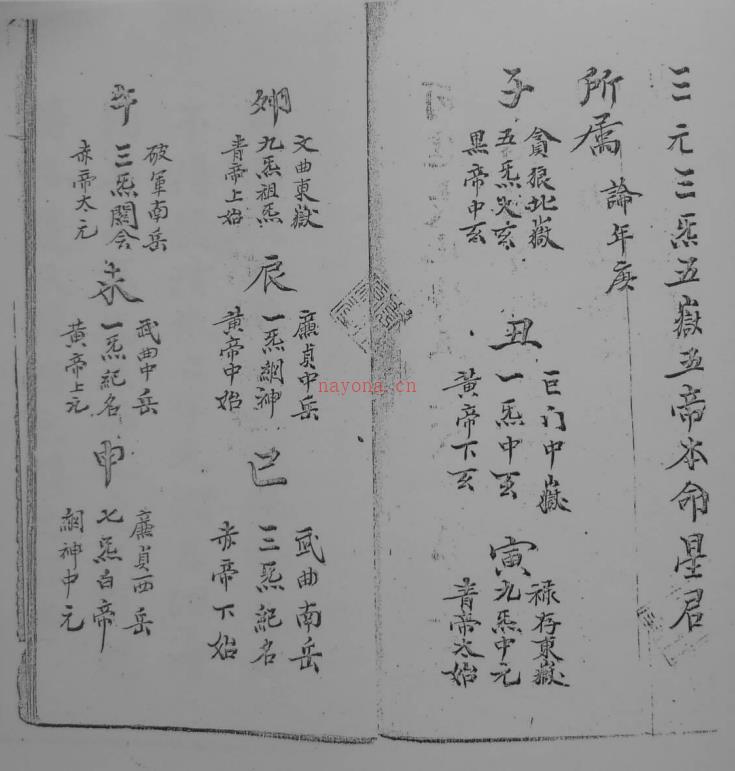 三元三炁五嶽五帝本命星君
所属 論年庚
子
貪狼北嶽
五炁 玄
黑帝中玄
丑
巨门中嶽
一炁中玄
黃帝下玄
寅
禄存東嶽
九炁中元
青帝太始
卯
文曲東嶽
九炁祖炁
青帝上始
辰
廉貞中岳
一炁網神
黃帝中始
巳
武曲南岳
三炁紀名
赤帝下始
午
破軍南岳
三炁関合
赤帝太元
未
武曲中岳
一炁紀名
黃帝上元
申
廉貞西岳
七炁白帝
網神中元
nayona.cn